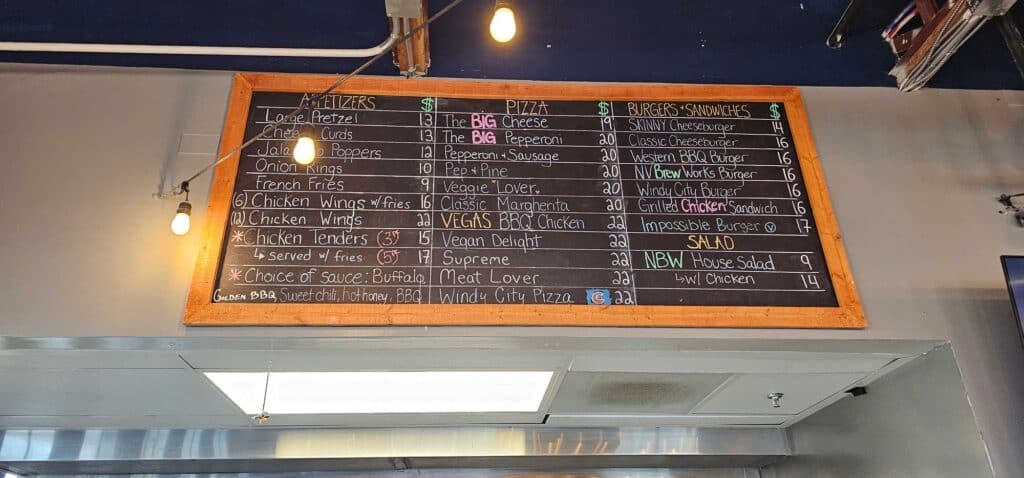 APPETIZERS $
Large Pretzel 13
Cheese Curds 13
Jalapeno Poppers 12
Onion Rings 10
French Fries 9
(6) Chicken Wings w/fries 16
(12) Chicken Wings 22
*Chicken Tenders (3) 15
↳ served w/ fries (5) 17
*Choice of sauce: Buffalo,
GOLDEN BBQ, Sweet chili, hot honey, BBQ
PIZZA $
The BIG Cheese 19
The BIG Pepperoni 20
Pepperoni + Sausage 20
Pep + Pine 20
Veggie Lover 20
Classic Margherita 20
VEGAS BBQ Chicken 22
Vegan Delight 22
Supreme 22
Meat Lover 22
Windy City Pizza C 22
BURGERS + SANDWICHES $
SKINNY Cheeseburger 14
Classic Cheeseburger 16
Western BBQ Burger 16
NV Brew Works Burger 16
Windy City Burger 16
Grilled Chicken Sandwich 16
Impossible Burger Ⓥ 17
SALAD
NBW House Salad 9
↳ w/ Chicken 14